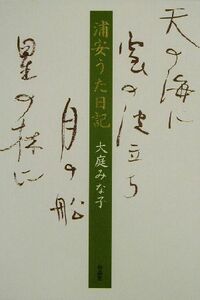 天の海に
雲の波立ち
月の船
星の林に
浦安うた日記
大庭みな子